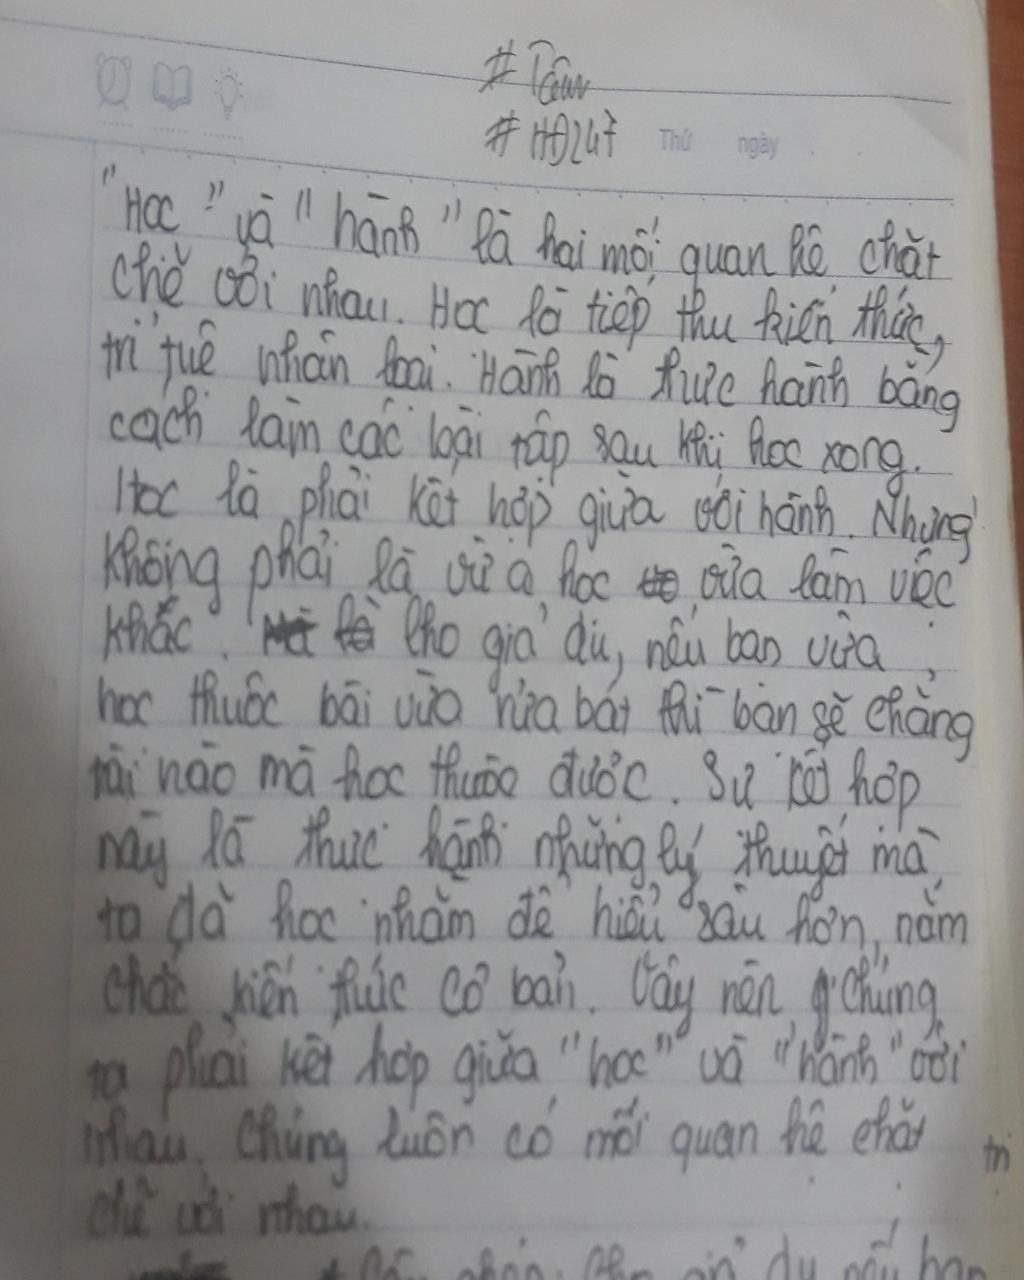 # Tâm
# HĐ247
Thứ ngày
"Học" và "hành" là hai mối quan hệ chặt
chẽ với nhau. Học là tiếp thu kiến thức,
trí tuệ nhân loại. Hành là thực hành bằng
cách làm các loại tập sau khi học xong.
Học là phải kết hợp giữa với hành. Nhưng
không phải là vừa học vừa làm việc
khác. Cho giả dụ, nếu bạn vừa
học thuộc bài vừa rửa bát thì bạn sẽ chẳng
tài nào mà học thuộc được. Sự kết hợp
này là thực hành những lý thuyết mà
ta đã học nhằm để hiểu sâu hơn, nắm
chắc kiến thức cơ bản. Vậy nên chúng
ta phải kết hợp giữa "học" và "hành" với
nhau. Chúng luôn có mối quan hệ chặt
chẽ với nhau.